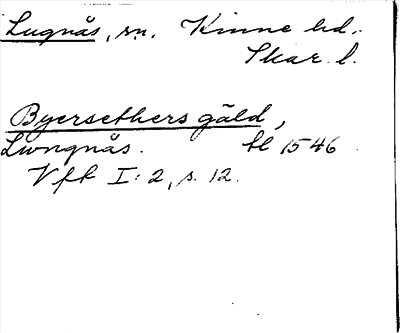 Lugnås, sn. Kinne hd.
Skar. l.
Byersethers gäld,
Lwngnås. tl 1546
Vfk I: 2, s. 12.